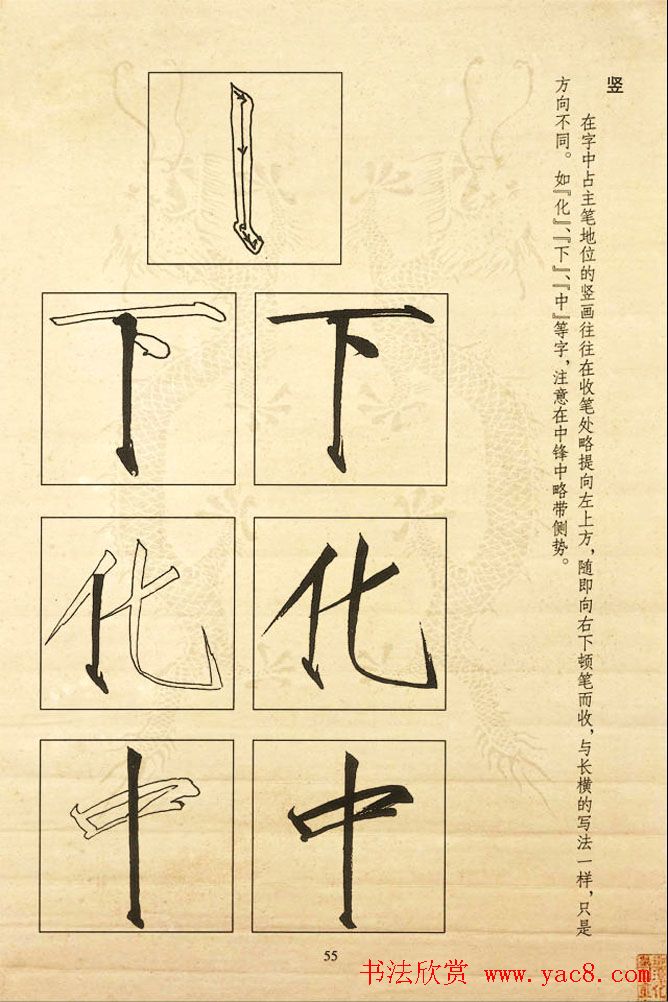 竖
在字中占主笔地位的竖画往往在收笔处略提向左上方，随即向右下顿笔而收，与长横的写法一样，只是
方向不同。如『化』、『下』、『中』等字，注意在中锋中略带侧势。
下 下
化 化
中 中
55
书法欣赏 www.yac8.com